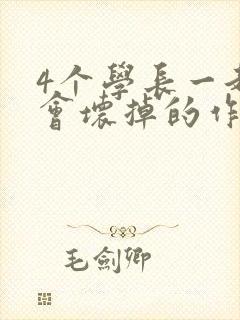 4个學長一
會壞掉的作
毛劍卿